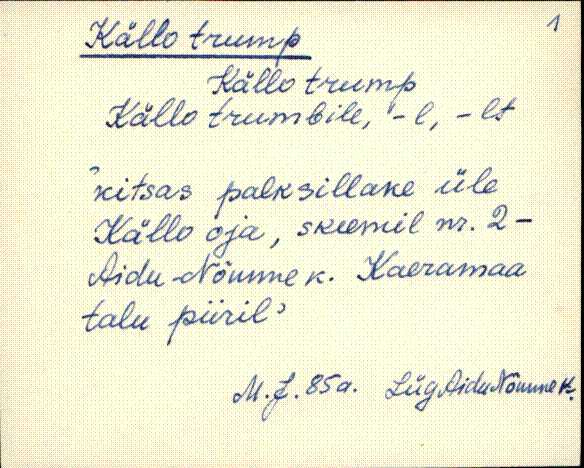 1
Källo trump
Källo trump
Källo trumbile, -l, -lt
'kitsas palksillake üle
Källo oja, skeemil nr. 2 -
Aidu-Nõmme k. Kaeramaa
talu piiril'
M. J. 85a. Lüg Aidu Nõmme k.